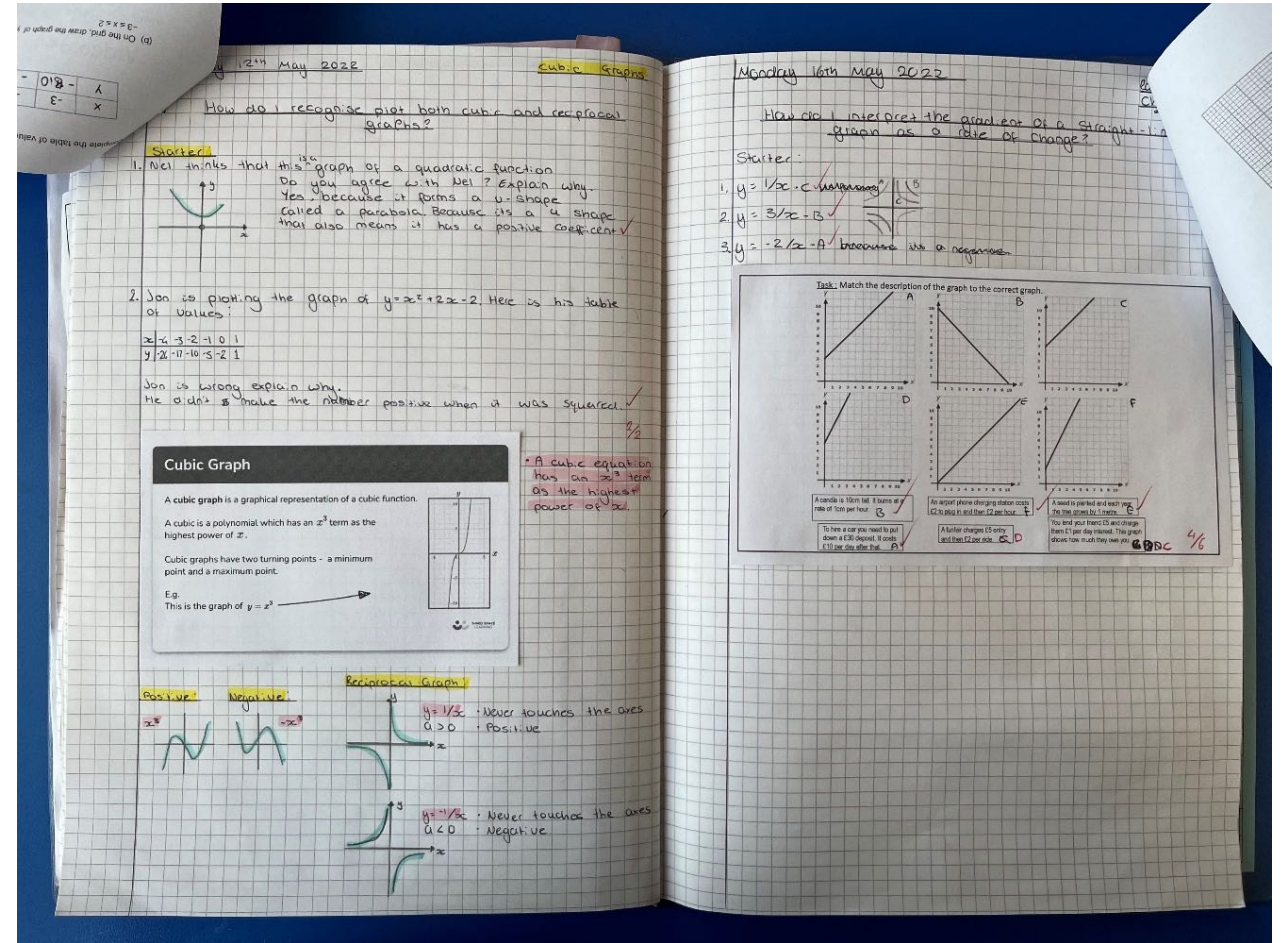 (b) On the grid, draw the graph of
-3 ≤ x ≤ 2
x -3
y -8 10
12th May 2022
Cubic Graphs
How do I recognise plot both cubic and reciprocal
graphs?
Starter:
1. Nel thinks that this is a graph of a quadratic function
Do you agree with Nel? Explain why.
Yes, because it forms a u-shape
called a parabola. Because its a u shape
that also means it has a positive coefficent
y
x
2. Jon is plotting the graph of y=x²+2x-2. Here is his table
of values:
x -4 -3 -2 -1 0 1
y -26 -17 -10 -5 -2 1
Jon is wrong explain why.
He didn't make the number positive when it was squared.
2/2
Cubic Graph
A cubic graph is a graphical representation of a cubic function.
A cubic is a polynomial which has an x³ term as the
highest power of x.
Cubic graphs have two turning points - a minimum
point and a maximum point.
E.g.
This is the graph of y = x³
• A cubic equation
has an x³ term
as the highest
power of x.
Positive:
Negative:
x³
-x³
Reciprocal Graph:
y
x
y=1/x • Never touches the axes
a>0 • Positive
y
x
y=-1/x • Never touches the axes
a<0 • Negative
Monday 16th May 2022
How do I interpret the gradient of a straight-lin
graph as a rate of change?
Starter:
1. y = 1/x - C
2. y = 3/x - B
3. y = -2/x - A
Task: Match the description of the graph to the correct graph.
A
B
C
D
E
F
A candle is 10cm tall. It burns at a
rate of 1cm per hour. B
An airport phone charging station costs
£2 to plug in and then £2 per hour. F
A seed is planted and each year
the tree grows by 1 metre. E
To hire a car you need to put
down a £30 deposit. It costs
£10 per day after that. A
A funfair charges £5 entry
and then £2 per ride. D
You lend your friend £5 and charge
them £1 per day interest. This graph
shows how much they owe you. C
4/6